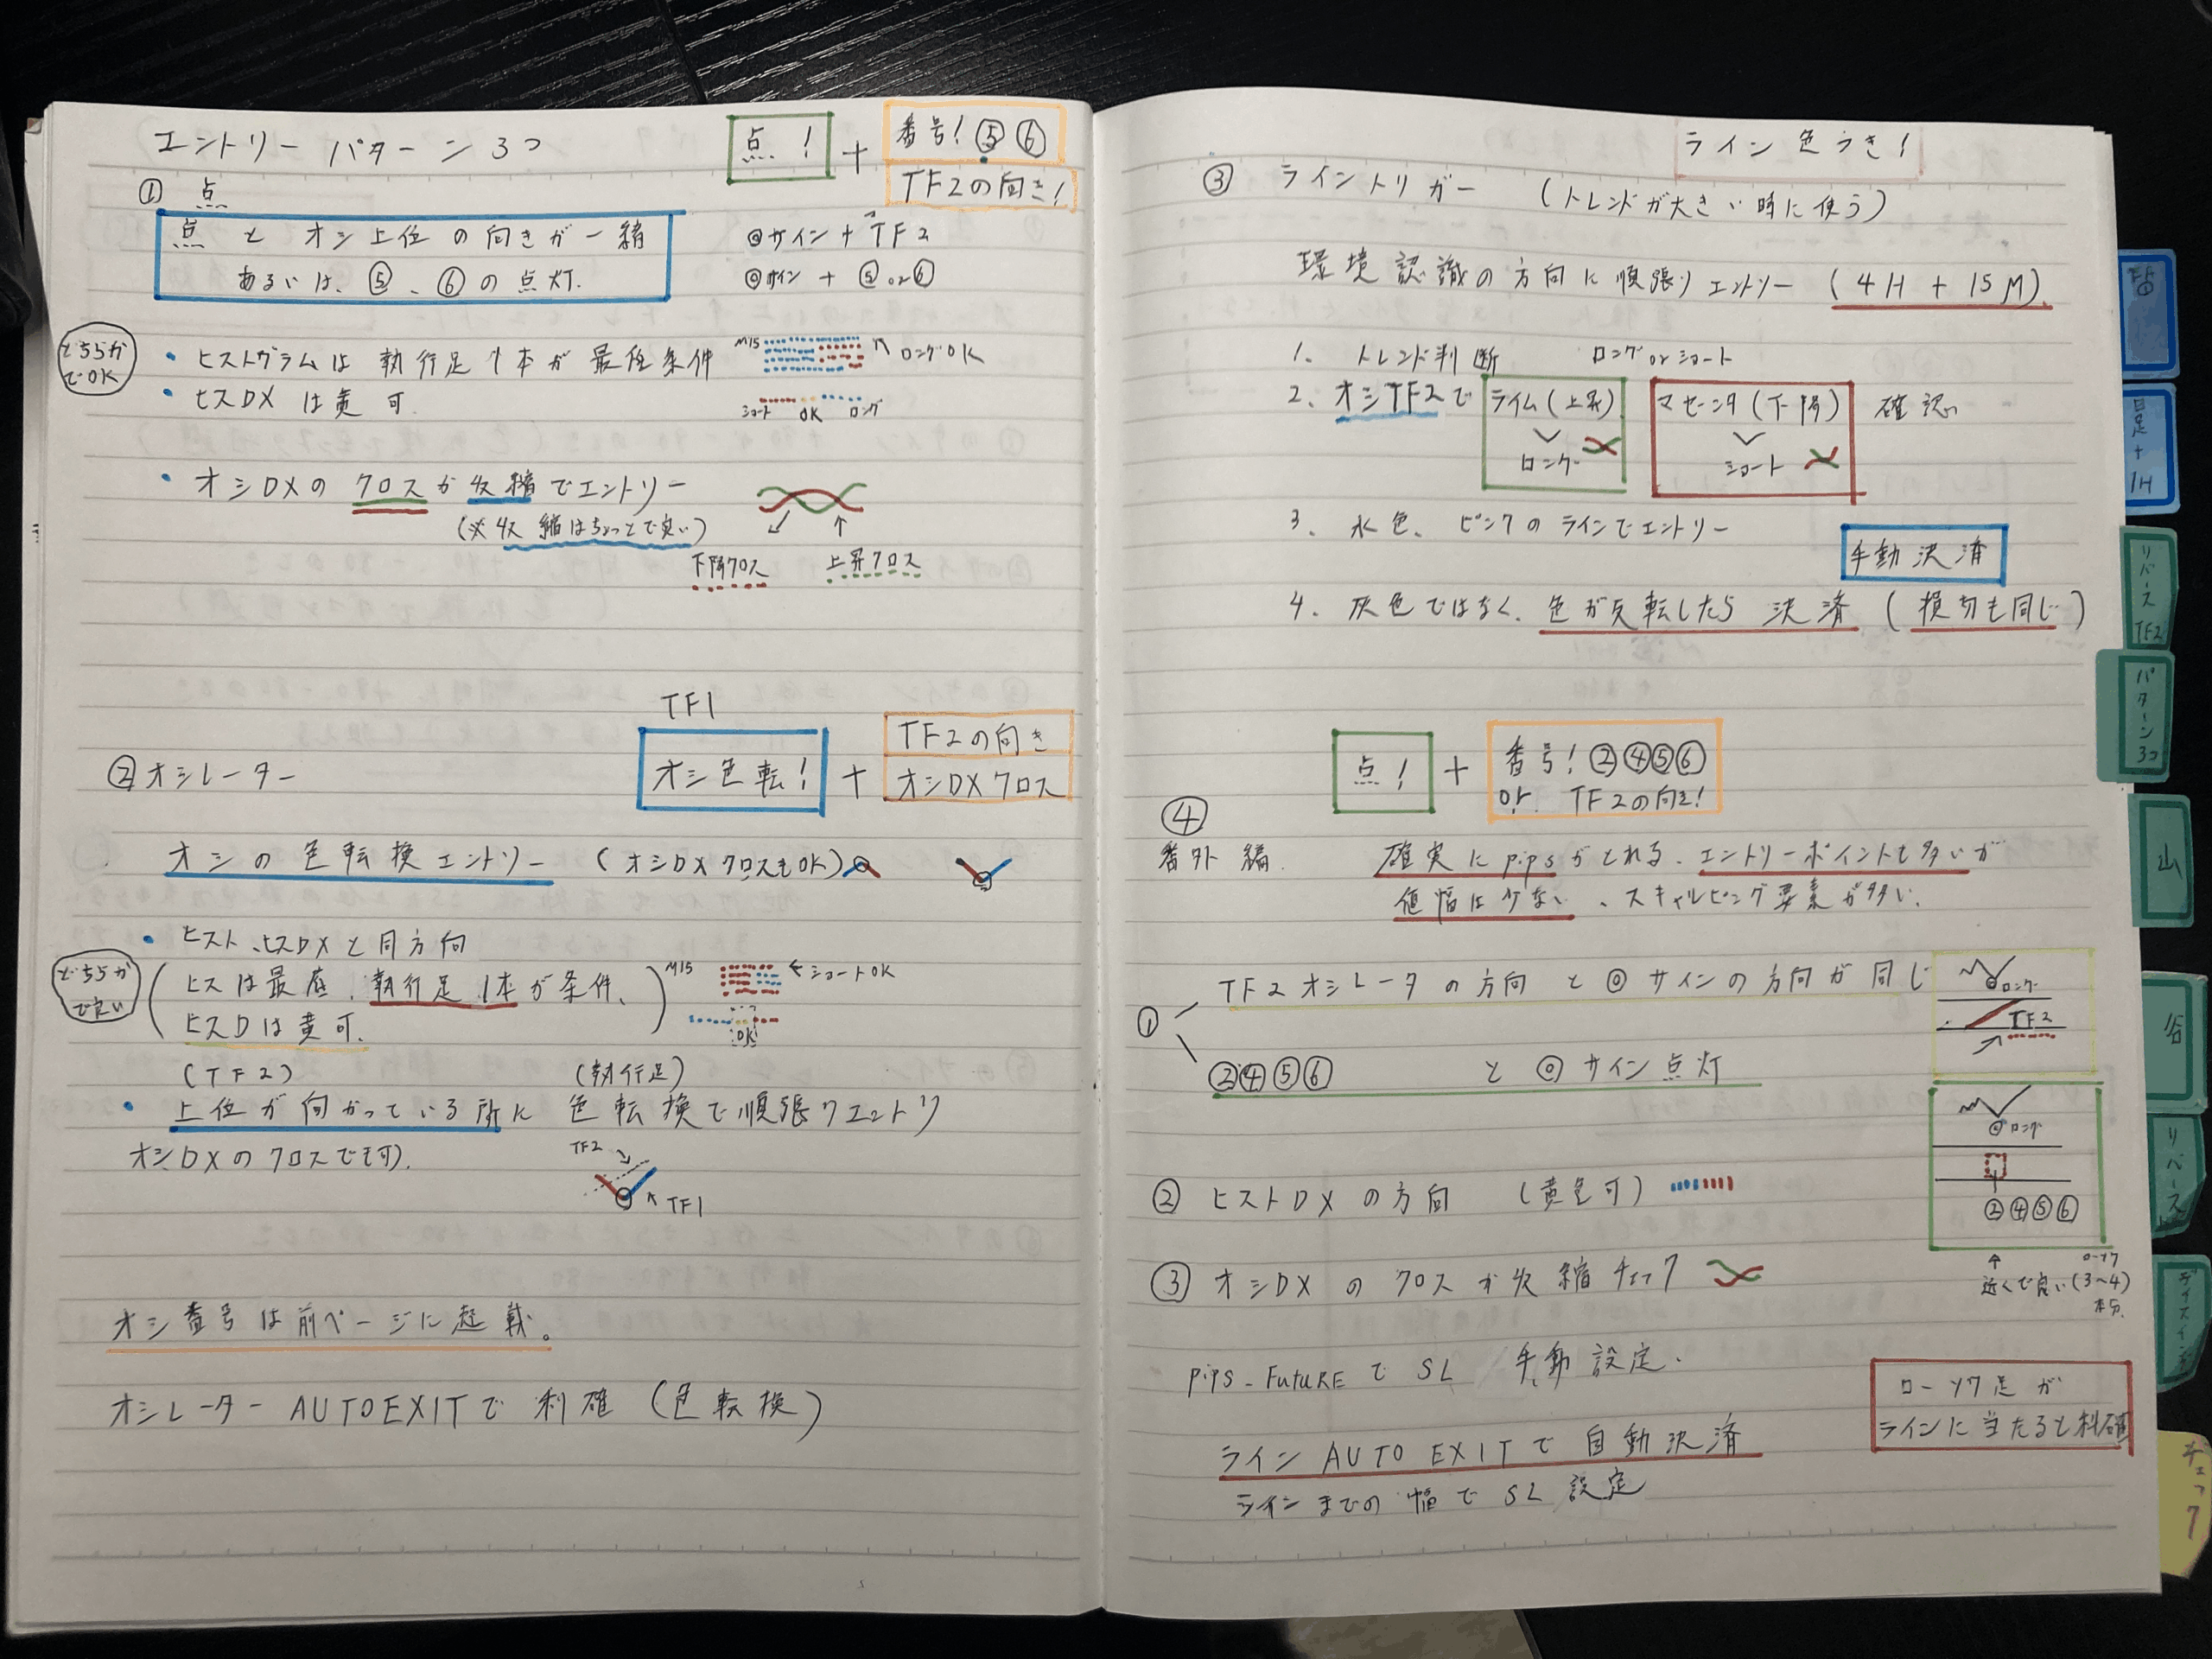 エントリー パターン 3つ
点! + 番号! ⑤ ⑥
TF2の向き!
① 点
点 と オシ上位 の向きが一緒
あるいは、⑤、⑥ の点灯.
◎サイン + TF2
◎サイン + ⑤ or ⑥
どちらか
でOK
・ヒストグラムは 執行足 1本が 最低条件
M15
ロングOK
・ヒスDX は 黄 可
ショート OK ロング
・オシDXの クロスか収縮でエントリー
(※収縮はちょっとで良い)
下降クロス 上昇クロス
TF1
② オシレーター
オシ色転! + TF2の向き
オシDXクロス
オシの色転換エントリー (オシDXクロスもOK)
・ヒスト、ヒスDXと同方向
どちらか
で良い
(ヒスは最底、執行足1本が条件、
ヒスDは黄可.)
M15
←ショートOK
OK
(TF2) (執行足)
・上位が向かっている所に 色転換で順張りエントリ
オシDXのクロスでも可).
TF2
TF1
オシ番号は前ページに記載。
オシレーター AUTOEXITで 利確 (色転換)
ライン 色つき!
③ ライントリガー (トレンドが大きい時に使う)
環境認識の方向に順張りエントリー (4H + 15M).
1. トレンド判断 ロング or ショート
2. オシTF2で ライム(上昇) マゼンタ(下降) 確認
ロング ショート
3. 水色、ピンクのラインでエントリー
手動決済
4. 灰色ではなく、色が反転したら 決済 (損切も同じ)
点! + 番号! ②④⑤⑥
or TF2の向き!
④
番外編 確実にpipsがとれる、エントリーポイントも多いが
値幅は少ない、スキャルピング要素が多い.
① TF2オシレータの方向 と ◎サインの方向が同じ
②④⑤⑥ と ◎サイン点灯
◎ロング
TF2
◎ロング
②④⑤⑥
近くで良い(3~4)
本分.
② ヒストDX の方向 (黄色可)
③ オシDX の クロスか収縮チェック
pips_FUTUREで SL 手動設定.
ローソク足が
ラインに当たると利確
ライン AUTO EXITで 自動決済
ラインまでの幅で SL設定
日足
+
1H
リバース
TF2
パターン
3つ
山
谷
リベース
チェック